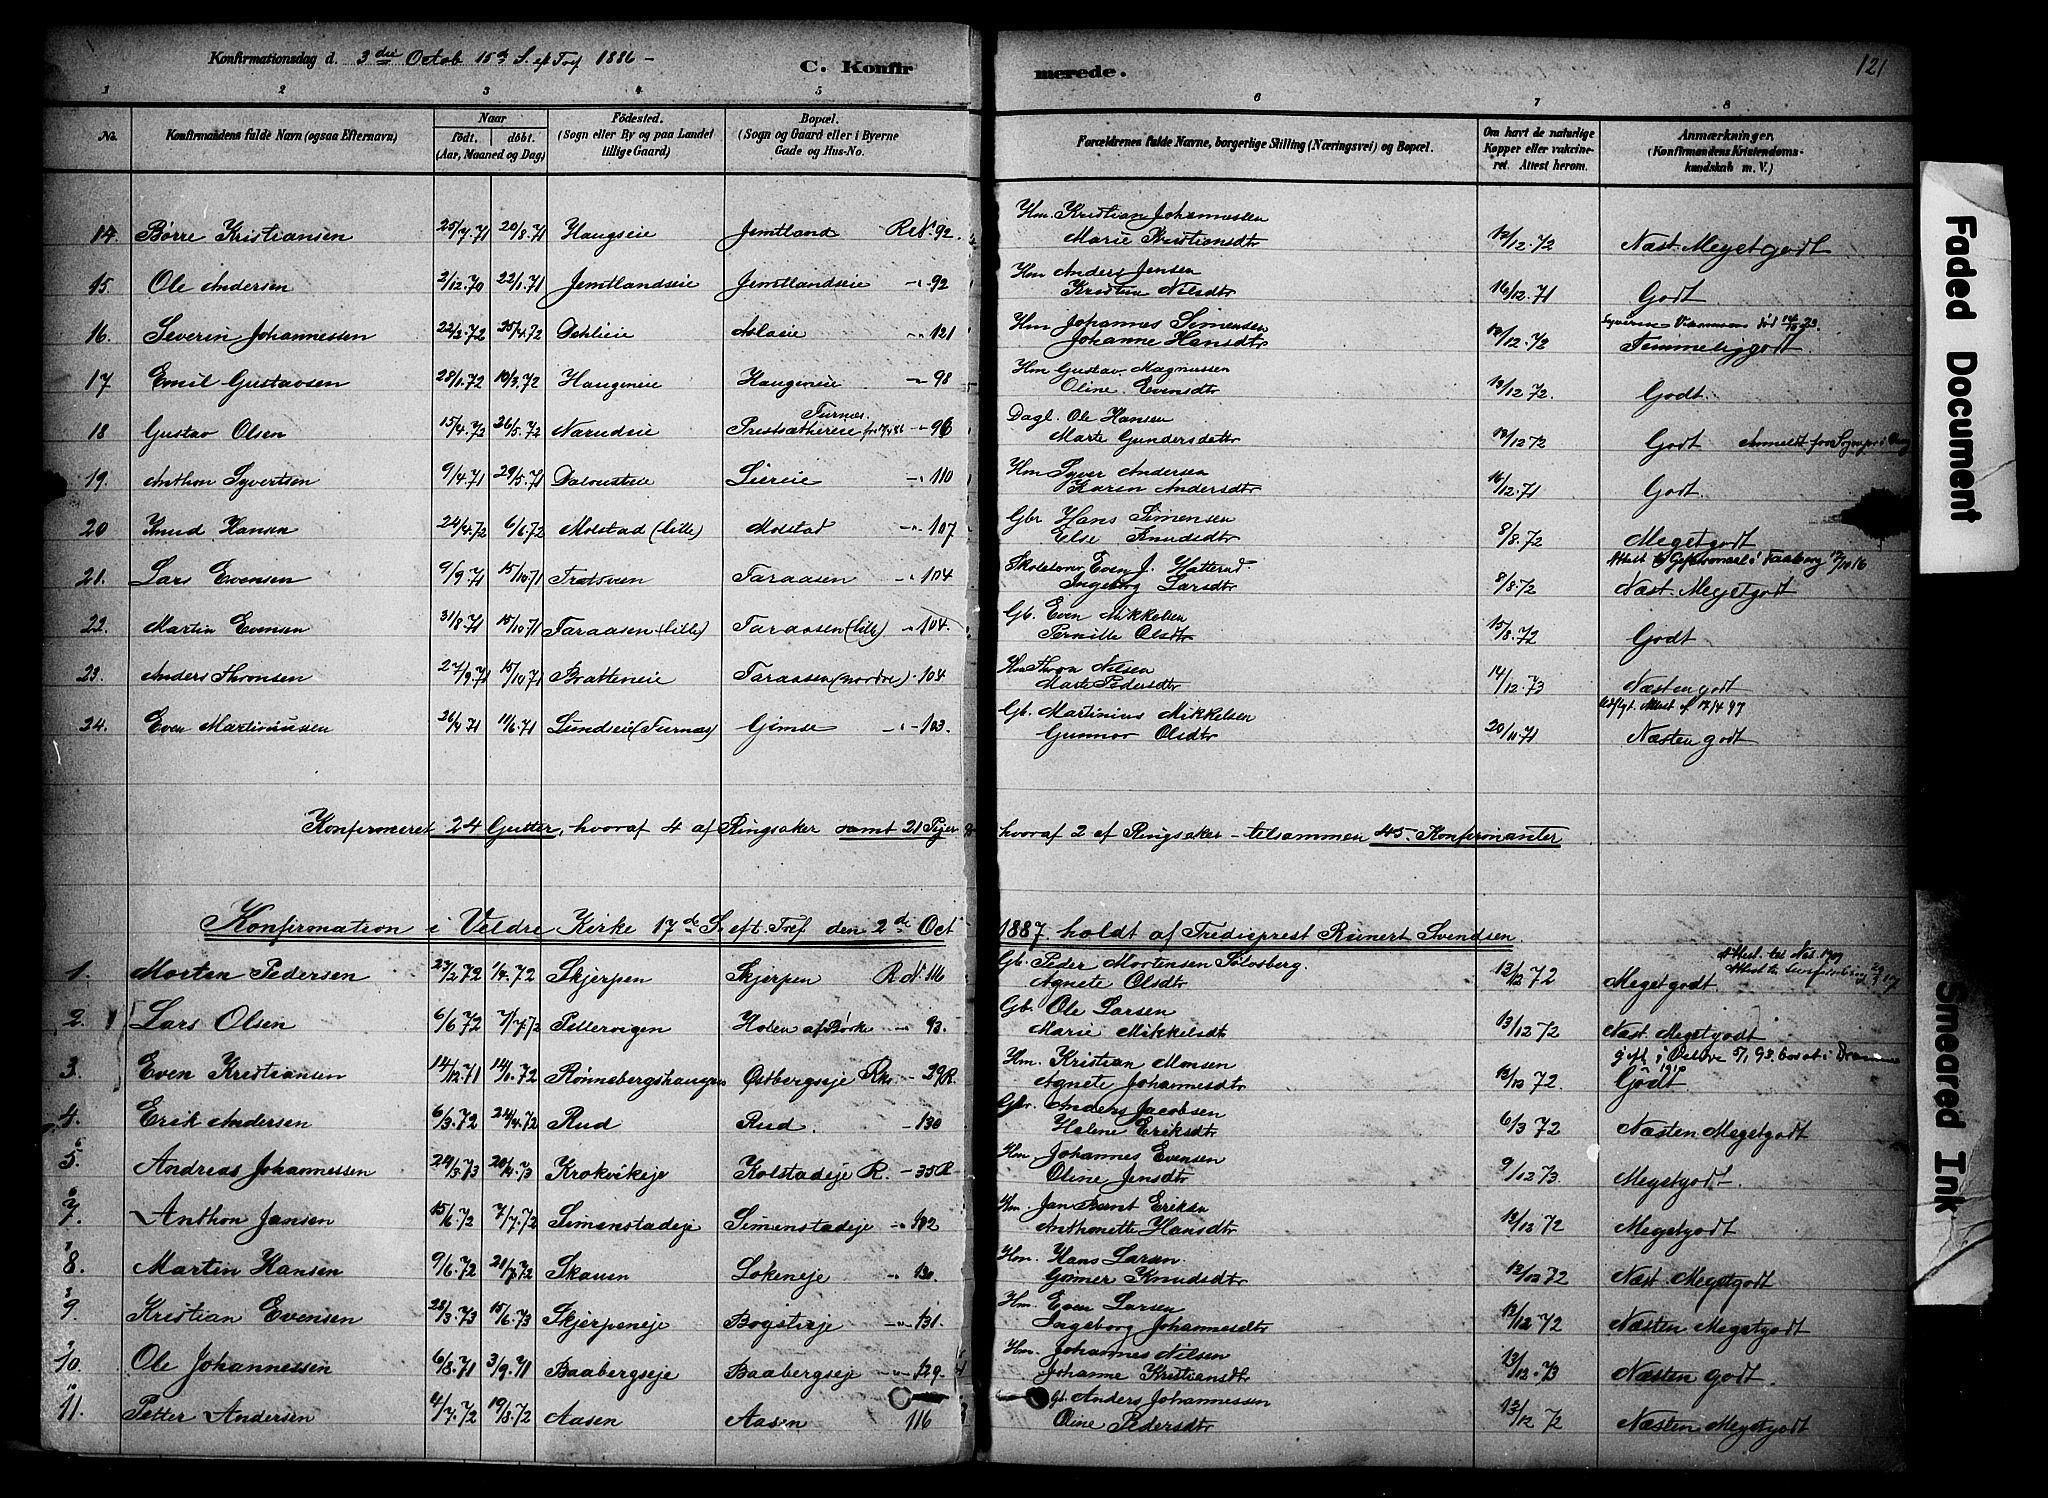 Konfirmationsdag d. 3die Octob 15de S. ef Tref 1886 –
C. Konfirmerede.
121
1 2 3 4 5 6 7 8
No. Konfirmandens fulde Navn (ogsaa Efternavn) Naar født. døbt. (Aar, Maaned og Dag) Fødested. (Sogn eller By og paa Landet tillige Gaard) Bopæl. (Sogn og Gaard eller i Byerne Gade og Hus-No. Forældrenes fulde Navne, borgerlige Stilling (Næringsvei) og Bopæl. Om havt de naturlige Kopper eller vakcineret. Attest herom. Anmærkninger. (Konfirmandens Kristendomskundskab m. V.)
14. Børre Kristiansen 25/7.71 20/8.71 Haugseie Jemtland R.N. 92. Hm. Kristian Johannessen
Marie Kristiansdtr 12/12.72 Næst. Megetgodt
15. Ole Andersen 2/12.70 22/1.71 Jemtlandseie Jemtlandseie -"- 92 Hm Anders Jensen
Kristine Nilsdtr 16/12.71 Godt
16. Severin Johannessen 22/2.72 25/4.72 Dehlieie -"- 121 Hm Johannes Simensen
Johanne Hansdtr 12/12.72 Temmeliggodt.
17 Emil Gustavsen 28/1.72 10/3.72 Haugeneie Haugeneie -"- 98 Hm Gustav Magnussen
Oline Evensdtr 12/12.72. Godt.
18 Gustav Olsen 15/4.72 26/5.72 Narudeie Prestsæthereie Furnes -"- 96 Dagl. Ole Hansen
Marte Gundersdatr 12/12 72 Godt Anmeldt for Sognepr. i
19. Anthon Syvertsen 9/4.71 29/5.71 Liereie -"- 110 Hm Syver Andersen
Karen Andersdtr 16/12.71 Godt.
20 Knud Hansen 24/4.72 6/6.72 Molstad (lille) Molstad -"- 107 Gbr Hans Simensen
Else Knudsdtr 8/8.72 Megetgodt
21. Lars Evensen 9/9.71 15/10.71 Taraasen -"- 104 Skolelærer Even J.
Ingeborg Larsdtr 8/8.72 Næst. Megetgodt
22. Martin Evensen 31/8.71 15/10.71 Taraasen (lille) Taraasen (lille) -"- 104. Gb. Even Mikkelsen
Pernille Olsdtr 15/8.72 Godt
23. Anders Thronsen 27/9.71 15/10.71 Bratteneie Taraasen (nordre) -"- 104 Hm Thron Nilsen
Marte Pedersdtr 14/12.73 Næstengodt
24. Even Martiniussen 26/4.71 11/6.71 Lundseie (Furnæs) Gimse -"- 103. Gb. Martinius Mikkelsen
Gunnor Olsdtr 20/11.71 Udflgt. Attest 97
Næsten godt
Konfirmeret 24 Gutter, hvoraf 4 af Ringsaker samt 21 Piger hvoraf 2 af Ringsaker – tilsammen 45. Konfirmanter
Konfirmation i Veldre Kirke 17de S. eft. Tref den 2de Oct 1887 holdt af Tredieprest Reinert Svendsen
1. Morten Pedersen 27/2.72 1/4.72 Skjerpen Skjerpen R.N. 116 Gb. Peder Mortensen Sölvsberg.
Agnete Olsdtr 12/12 72 Megetgodt.
2. Lars Olsen 6/6 72 7/7.72 Pellervigen Holen af Börke -"- 93. Gb. Ole Larsen
Marie Mikkelsdtr 13/12 72 Næst. Megetgodt
3. Even Kristiansen 14/12.71 14/1.72 Rönnebergshaugen Östbergseje - 29R. Hm. Kristian Monsen
Agnete Johannesdtr 12/12 72. gift i Østre 5/1 93. bosat i
Godt
4. Erik Andersen 6/3.72 24/4.72 Rud Rud. - 130 Gbr. Anders Jacobsen
Helene Eriksdtr 6/3 72 Næsten Megetgodt
5. Andreas Johannessen 24/3.73 20/4.73 Krokvikeje Kolstadeje R. - 35R Hm Johannes Evensen
Oline Jensdtr 9/12 73. Megetgodt.
7. Anthon Jansen 15/6.72 7/7.72 Simenstadeje Simenstadeje -"- 102 Hm Jan Bernt Eriksn
Anthonette Hansdtr 13/12 72 Megetgodt
8. Martin Hansen 9/6.72 21/7.72 Skauen Lökeneje -"- 130. Hm. Hans Larsn
Gunner Knudsdtr 12/12 72 Næst Megetgodt
9. Kristian Evensen 28/3.73 15/6.73 Skjerpeneje Bogstieje -"- 131. Hm. Even Larsen
Ingeborg Johannesdtr 12/12 72 Næsten Megetgodt
10. Ole Johannessen 6/8.71 3/9.71 Baabergseje Baabergseje -"- 129. Hm. Johannes Nilsen
Johanne Kristiansdtr 13/12.73 Næsten godt.
11. Petter Andersen 4/7.72 19/8.72 Aasen Aasen 116 Gb. Anders Johannessen
Oline Pedersdtr 13/12 72 Næsten Megetgodt
Faded Document
Smeared Ink